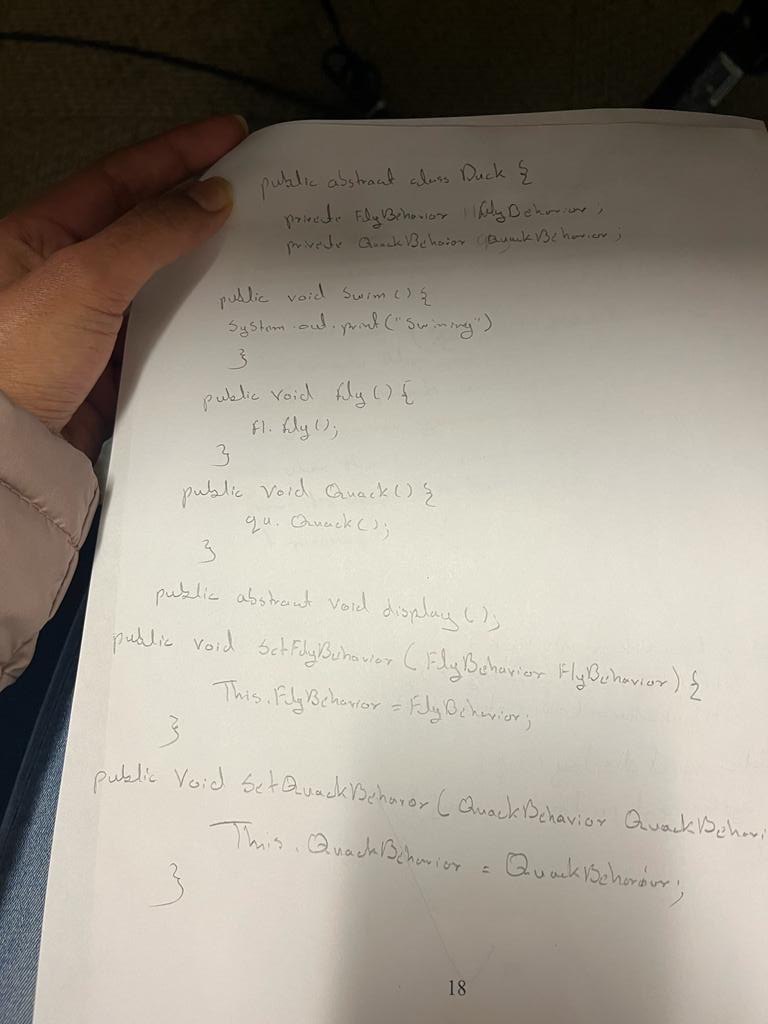 public abstract class Duck {
private FlyBehavior flyBehavior;
private QuackBehaior QuackBehavior;
public void Swim () {
System.out.print("Swining")
}
public void fly () {
fl. fly ();
}
public void Quack () {
qu. Quack ();
}
public abstract void display ();
public void SetFlyBehavior ( FlyBehavior FlyBehavior) {
This. FlyBehavior = FlyBehavior;
}
public Void SetQuackBehavor ( QuackBehavior QuackBehavi
This. QuackBehavior = QuackBehavior;
}
18